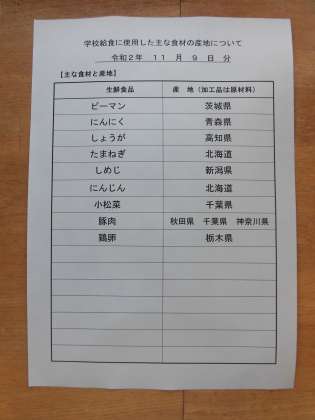 学校給食に使用した主な食材の産地について
令和2年 11 月 9 日 分
【主な食材と産地】
生鮮食品 産 地（加工品は原材料）
ピーマン 茨城県
にんにく 青森県
しょうが 高知県
たまねぎ 北海道
しめじ 新潟県
にんじん 北海道
小松菜 千葉県
豚肉 秋田県 千葉県 神奈川県
鶏卵 栃木県